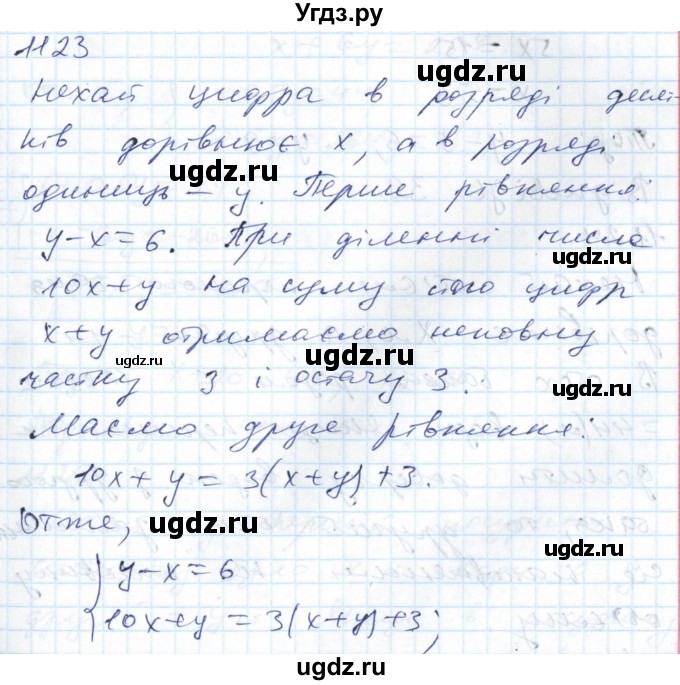 Угдз.ру
1123
Нехай цифра в розряді десят-
ків дорівнює x, а в розряді
одиниць – y. Перше рівняння:
y-x=6. При діленні числа
10x+y на суму його цифр
x+y отримаємо неповну
частку 3 і остачу 3.
Маємо друге рівняння:
10x+y=3(x+y)+3.
Отже,
y-x=6
10x+y=3(x+y)+3;
ugdz.ru
ugdz.ru
ugdz.ru
ugdz.ru
ugdz.ru
ugdz.ru
ugdz.ru
ugdz.ru
ugdz.ru
ugdz.ru
ugdz.ru
ugdz.ru